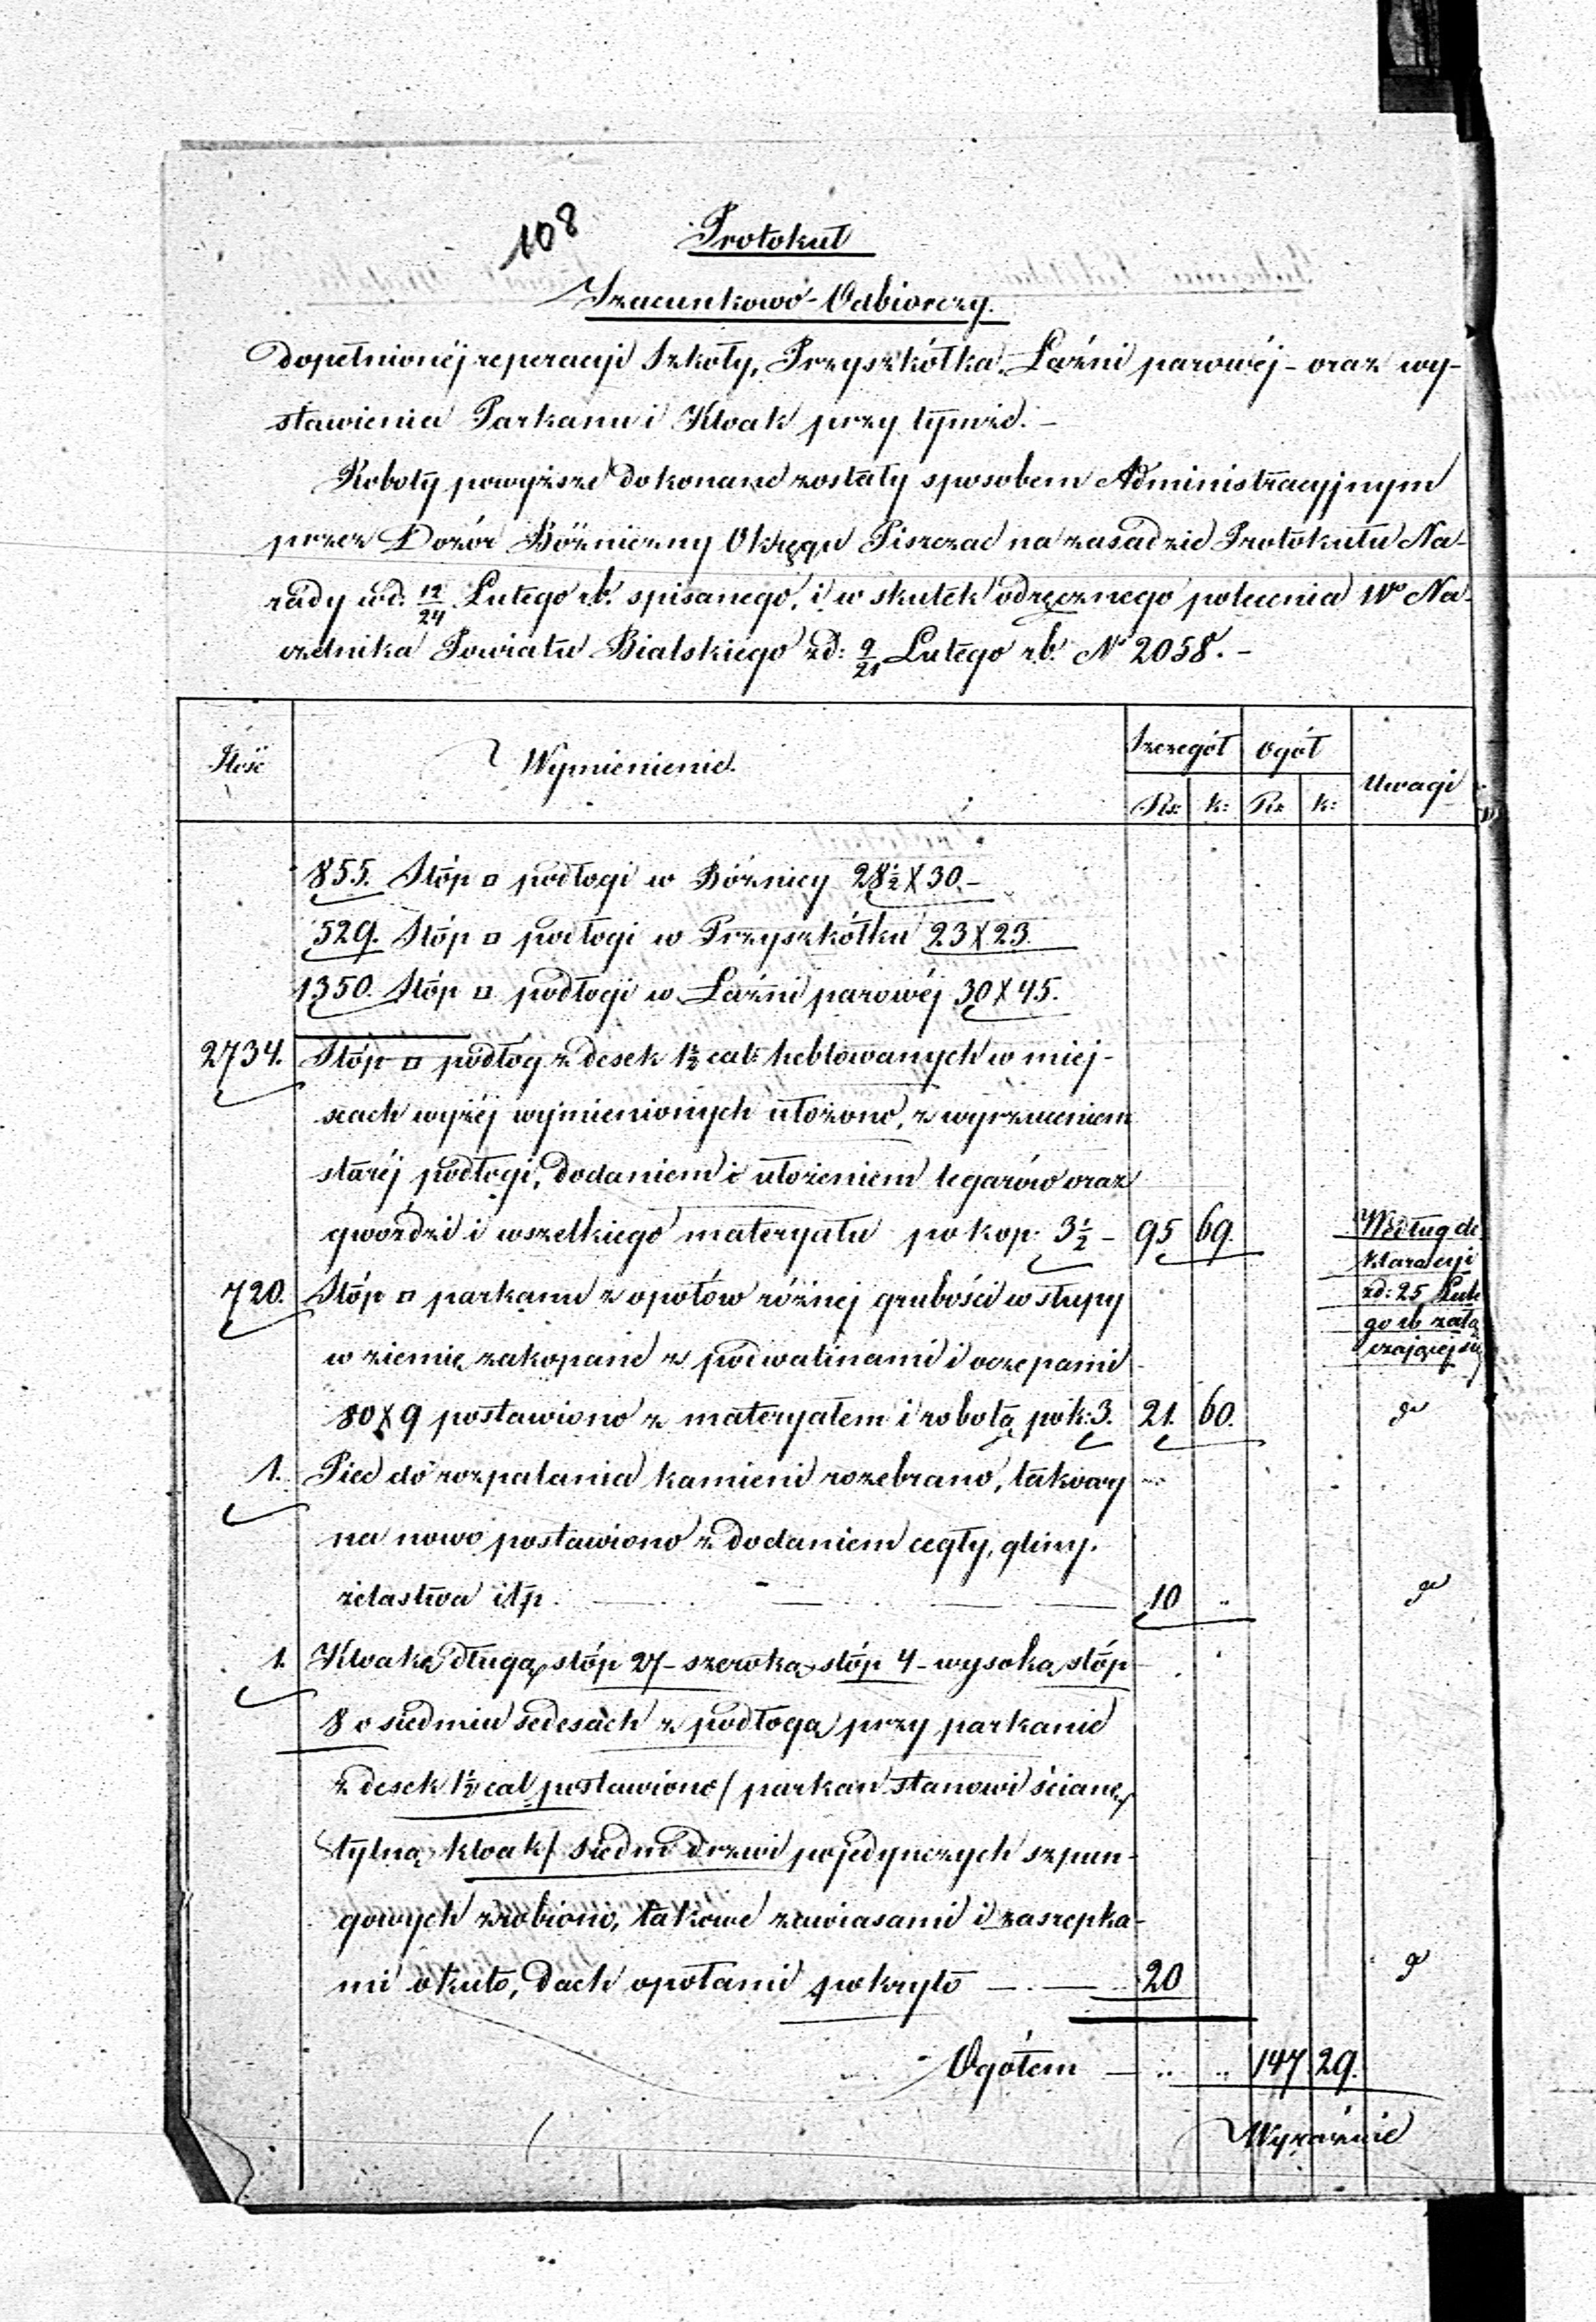 108
Protokuł
Szacunkowo-Odbiorczy.
dopełnionéj reperacyi Szkoły, Przyszkółka, Łaźni parowéj - oraz wy-
stawienia Parkanu i Kloak przy tymże. -
Roboty powyższe dokonane zostały sposobem Administracyjnym
przez Dozór Bóżniczny Okręgu Piszczac na zasadzie Protokułu Na-
rady w d: 12/24 Lutego rb. spisanego, i w skutek odręcznego polecenia Wo Na-
czelnika Powiatu Bialskiego z d: 9/21 Lutego r.b. No 2058. -
Ilość Wymienienie. Szczegół Ogół Uwagi
Rs: k: Rs k:
855. Stóp □ podłogi w Bóżnicy 28½ X 30. -
529. Stóp □ podłogi w Przyszkółku 23 X 23.
1350. Stóp □ podłogi w Łaźni parowéj 30 X 45.
2734. Stóp □ podłóg z desek 1½ cal: heblowanych w miej-
scach wyżéj wymienionych ułożono, z wyrzuceniem
staréj podłogi, dodaniem i ułożeniem legarów oraz
gwoździ i wszelkiego materyału po kop: 3½ - 95 69. Według de
klaracyi
z d: 25 Lute
go rb załą
czającej się
720. Stóp □ parkanu z opołów różnej grubości w słupy
w ziemię zakopane z podwalinami i oczepami
80 X 9 postawiono z materyałem i robotą po k: 3. 21. 60.
1. Piec do rozpalania kamieni rozebrano, takowy
na nowo postawiono z dodaniem cegły, gliny.
żelastwa itp. 10 "
1. Kloakę długą stóp 27 - szeroką stóp 4 - wysoką stóp
8 o siedmiu sedesach z podłogą przy parkanie
z desek 1½ cal postawiono / parkan stanowi ścianę
tylną kloak / siedm drzwi pojedynczych szpun-
gowych zrobiono, takowe zawiasami i zaszczepka-
mi okuto, dach opołami pokryto 20
Ogółem " " 147 29.
Wyraźnie